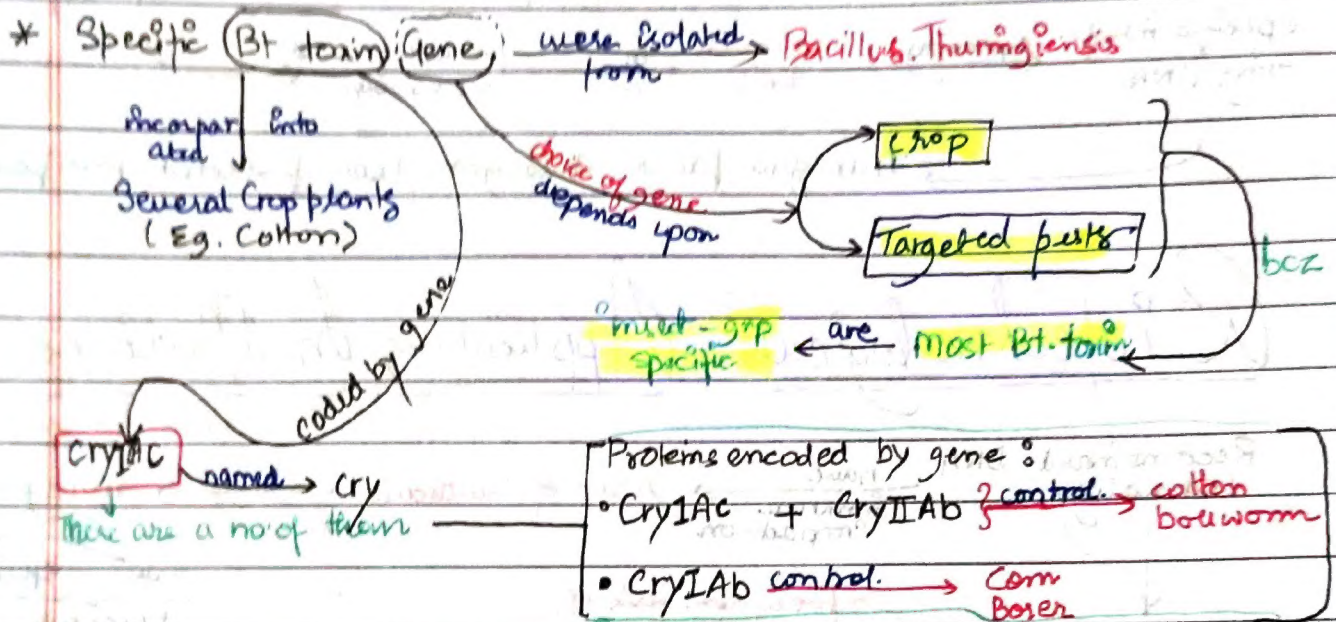 * Specific Bt toxin Gene were isolated from Bacillus. Thuringiensis
incorporated into
Several Crop plants
(Eg. Cotton)
choice of gene
depends upon
Crop
Targeted pests
bcz
most Bt. toxin are insect-grp specific
coded by gene
CryIAC named cry
There are a no of them
Proteins encoded by gene :
• CryIAc + CryIIAb } control. cotton bollworm
• CryIAb control. Corn Borer